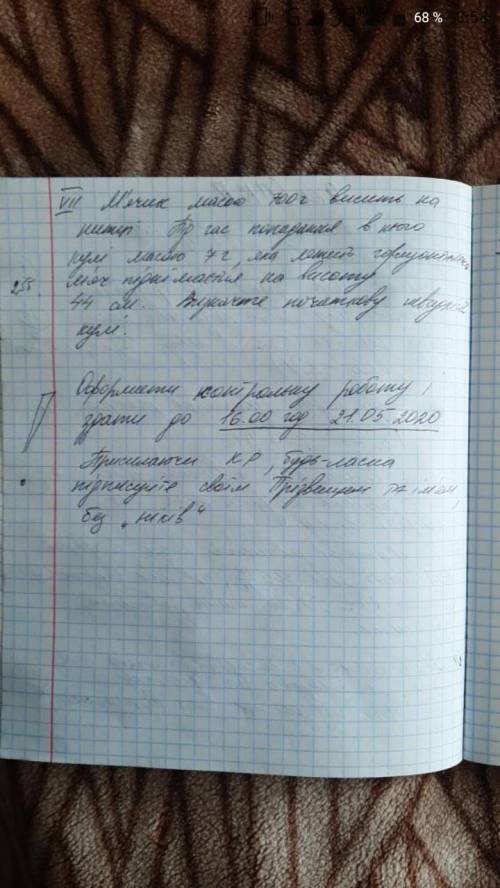 68 %
VII М'ячик масою 700г висить на
нитці. Під час попадання в нього
кулі масою 7 г, яка летить горизонтально,
м'яч піднімається на висоту
44 см. Визначте початкову швидкість
кулі.
Оформити контрольну роботу і
здати до 16.00 год 21.05.2020
Присилаючи КР, будь-ласка
підписуйте своїм Прізвищем та ім'ям,
без "ніків"